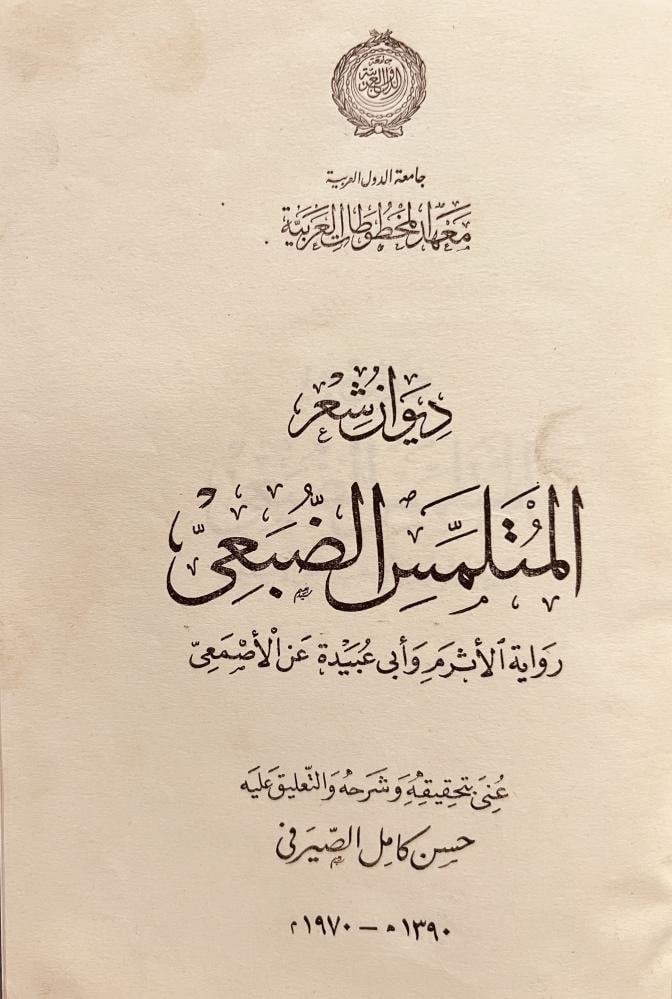 جامعة الدول العربية
جامعة الدول العربية
معهد المخطوطات العربية
ديوان شعر
المتلمس الضبعي
رواية الأثرم وأبي عبيدة عن الأصمعي
عني بتحقيقه وشرحه والتعليق عليه
حسن كامل الصيرفي
١٣٩٠ هـ — ١٩٧٠ م